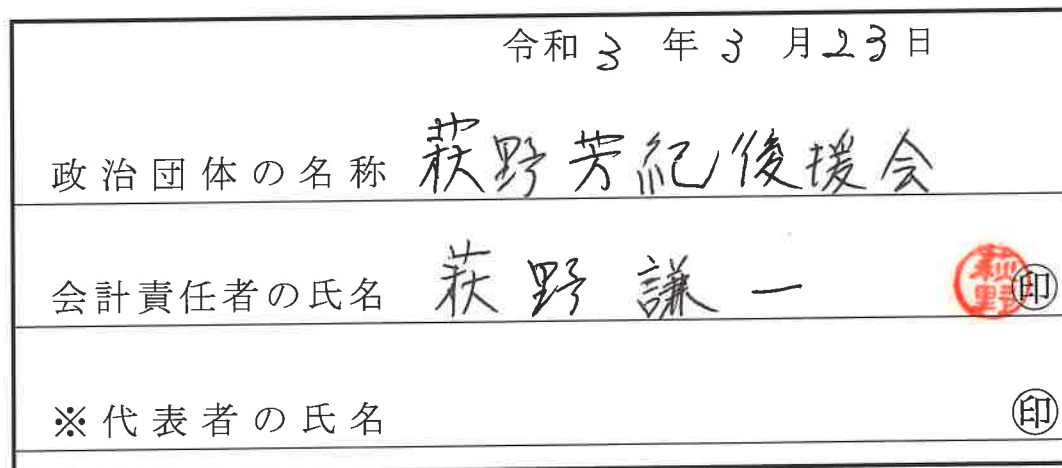 令和3年3月23日
政治団体の名称 萩野芳紀後援会
会計責任者の氏名 萩野謙一 萩野 ㊞
※代表者の氏名 ㊞